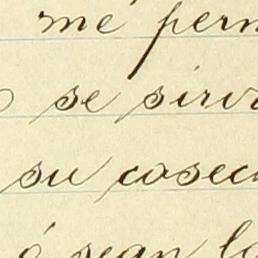 me perm
se sirv
su cosec
ó sean la